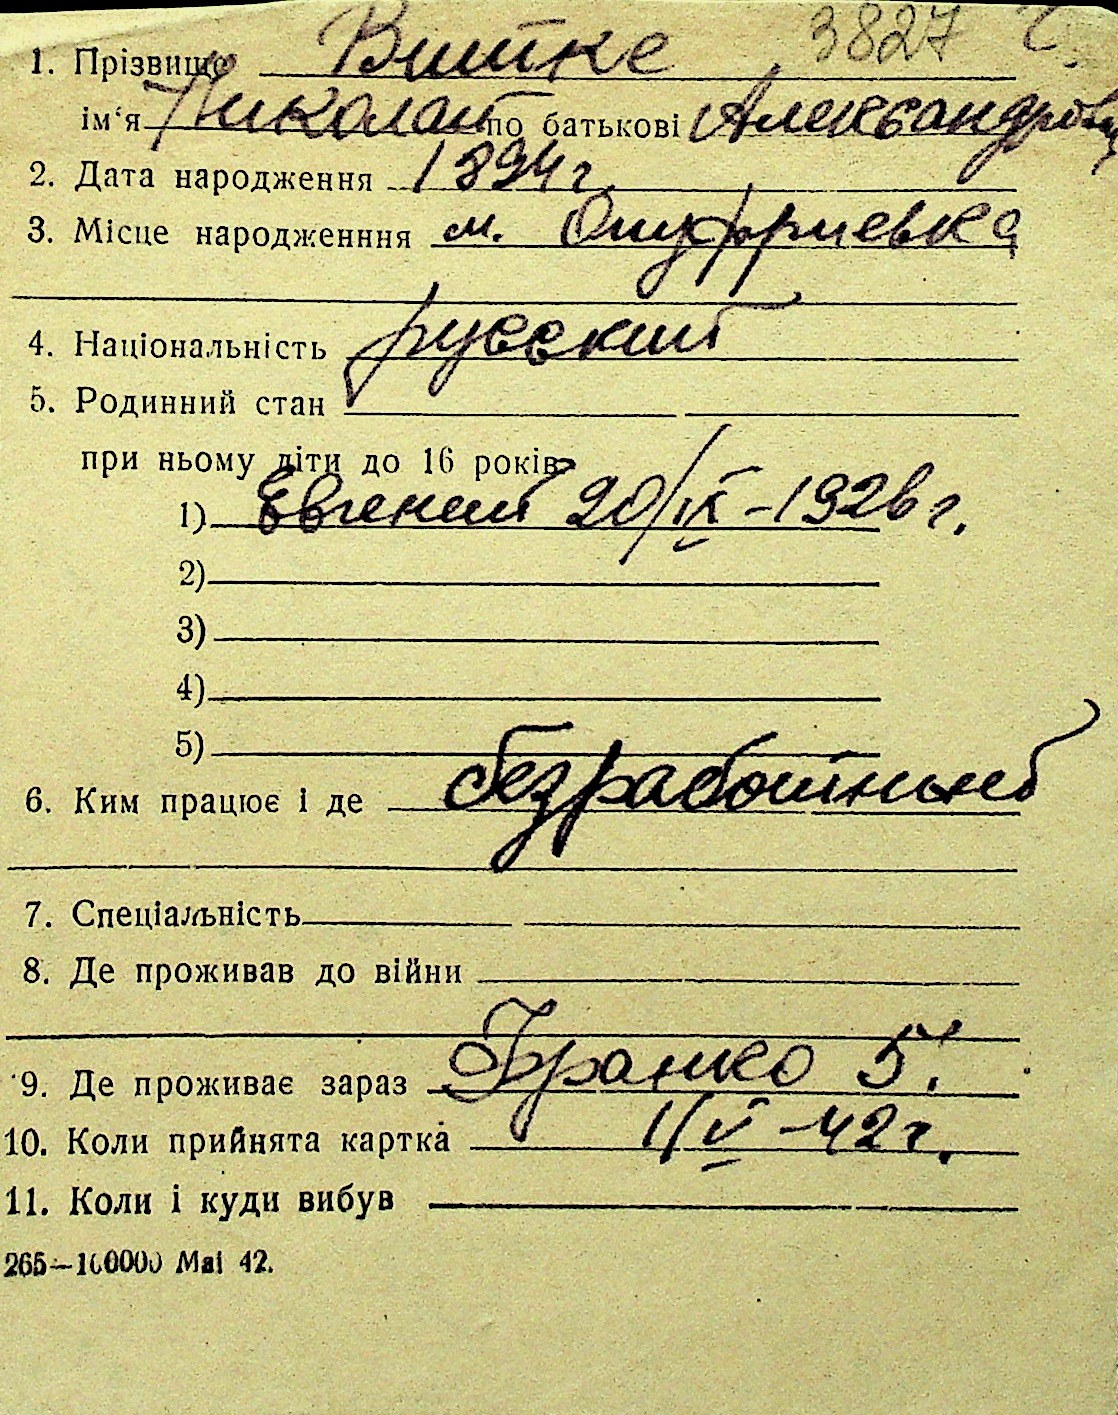 3827
1. Прізвище Витке
ім'я Николай по батькові Александрович
2. Дата народження 1894 г.
3. Місце народженння м. Онуфриевка
4. Національність русский
5. Родинний стан
при ньому діти до 16 років
1) Евгений 20/IX-1926 г.
2)
3)
4)
5)
6. Ким працює і де безработный
7. Спеціальність
8. Де проживав до війни
9. Де проживає зараз Франко 5.
10. Коли прийнята картка 1/V-42 г.
11. Коли і куди вибув
265—100000 Mai 42.